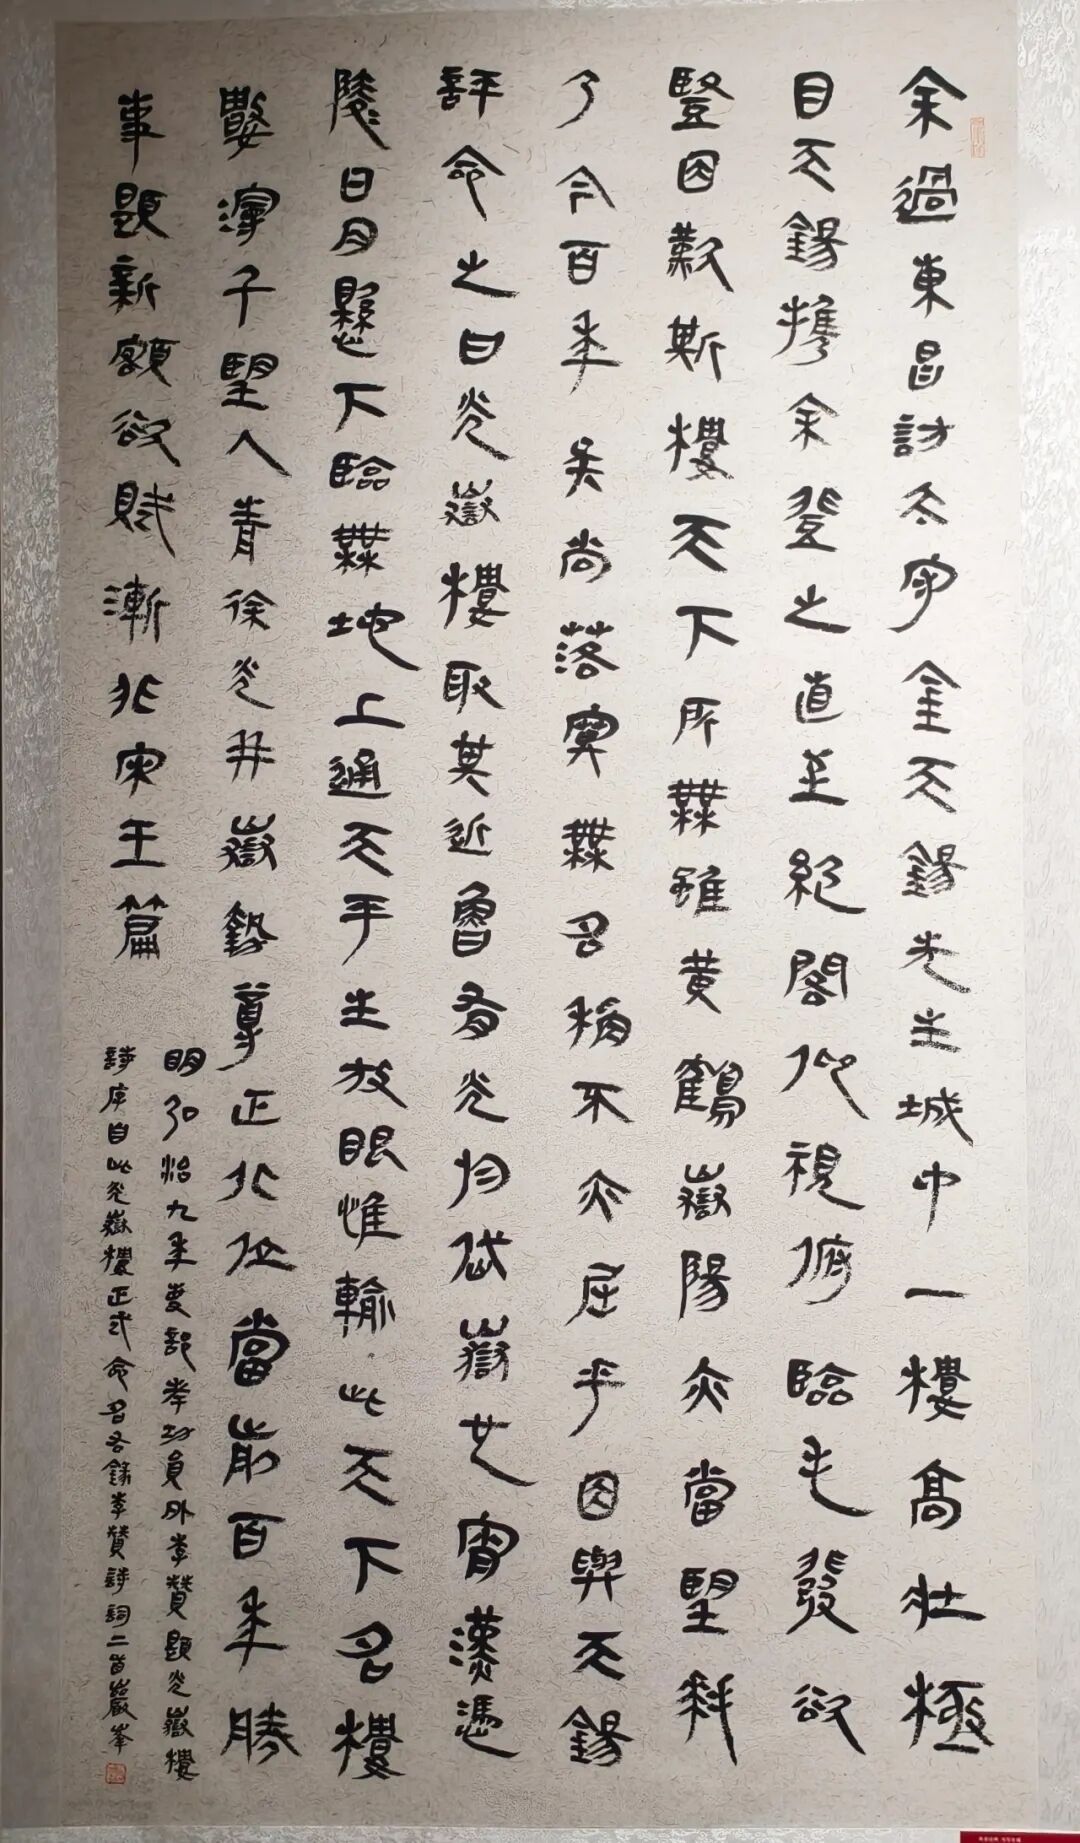 余過東昌訪太守金天錫先生城中一樓高壯極
目天錫攜余登之直至絕閣仰視俯臨毛發欲
豎因歎斯樓天下所無雖黃鶴嶽陽亦當望拜
乃今百年矣尚落寞無名稱不亦屈乎因與天錫
評命之曰光嶽樓取其近魯有光於岱嶽也霄漢憑
陵日月懸下臨無地上通天平生放眼惟輸此天下名樓
獨子望入青徐光並嶽勢尊正北位當前百年勝
事題新額欲賦漸非宋王篇
明弘治九年吏部考功員外李贊題光嶽樓
詩序自此光嶽樓正式命名各錄李贊詩詞二首嚴峯